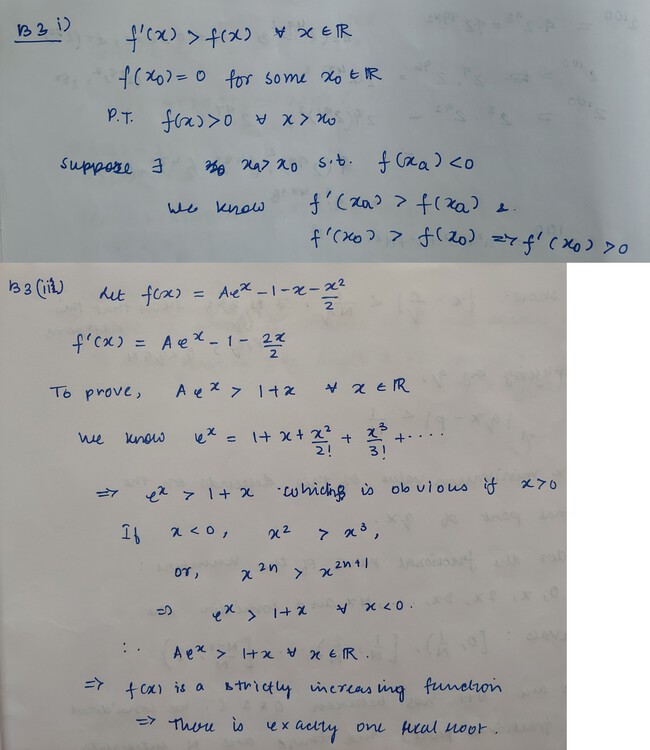 B3 i) f'(x) > f(x) ∀ x ∈ ℝ
f(x₀) = 0 for some x₀ ∈ ℝ
P.T. f(x) > 0 ∀ x > x₀
Suppose ∃ xₐ > x₀ s.t. f(xₐ) < 0
We know f'(xₐ) > f(xₐ) &
f'(x₀) > f(x₀) ⇒ f'(x₀) > 0
B3 (ii) Let f(x) = Aeˣ - 1 - x - x²/2
f'(x) = Aeˣ - 1 - 2x/2
To prove, Aeˣ > 1 + x ∀ x ∈ ℝ
We know eˣ = 1 + x + x²/2! + x³/3! + ....
⇒ eˣ > 1 + x which is obvious if x > 0
If x < 0, x² > x³,
or, x²ⁿ > x²ⁿ⁺¹
⇒ eˣ > 1 + x ∀ x < 0.
∴ Aeˣ > 1 + x ∀ x ∈ ℝ.
⇒ f(x) is a strictly increasing function
⇒ There is exactly one real root.